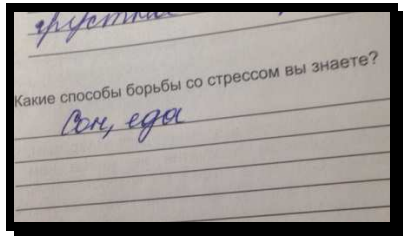 грустное
Какие способы борьбы со стрессом вы знаете?
Сон, еда